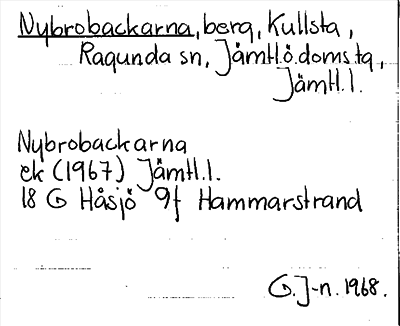 Nybrobackarna, berg, Kullsta,
Ragunda sn, Jämtl.ö.doms.tg,
Jämtl.l.
Nybrobackarna
ek (1967) Jämtl.l.
18 G Håsjö 9f Hammarstrand
G.J-n. 1968.